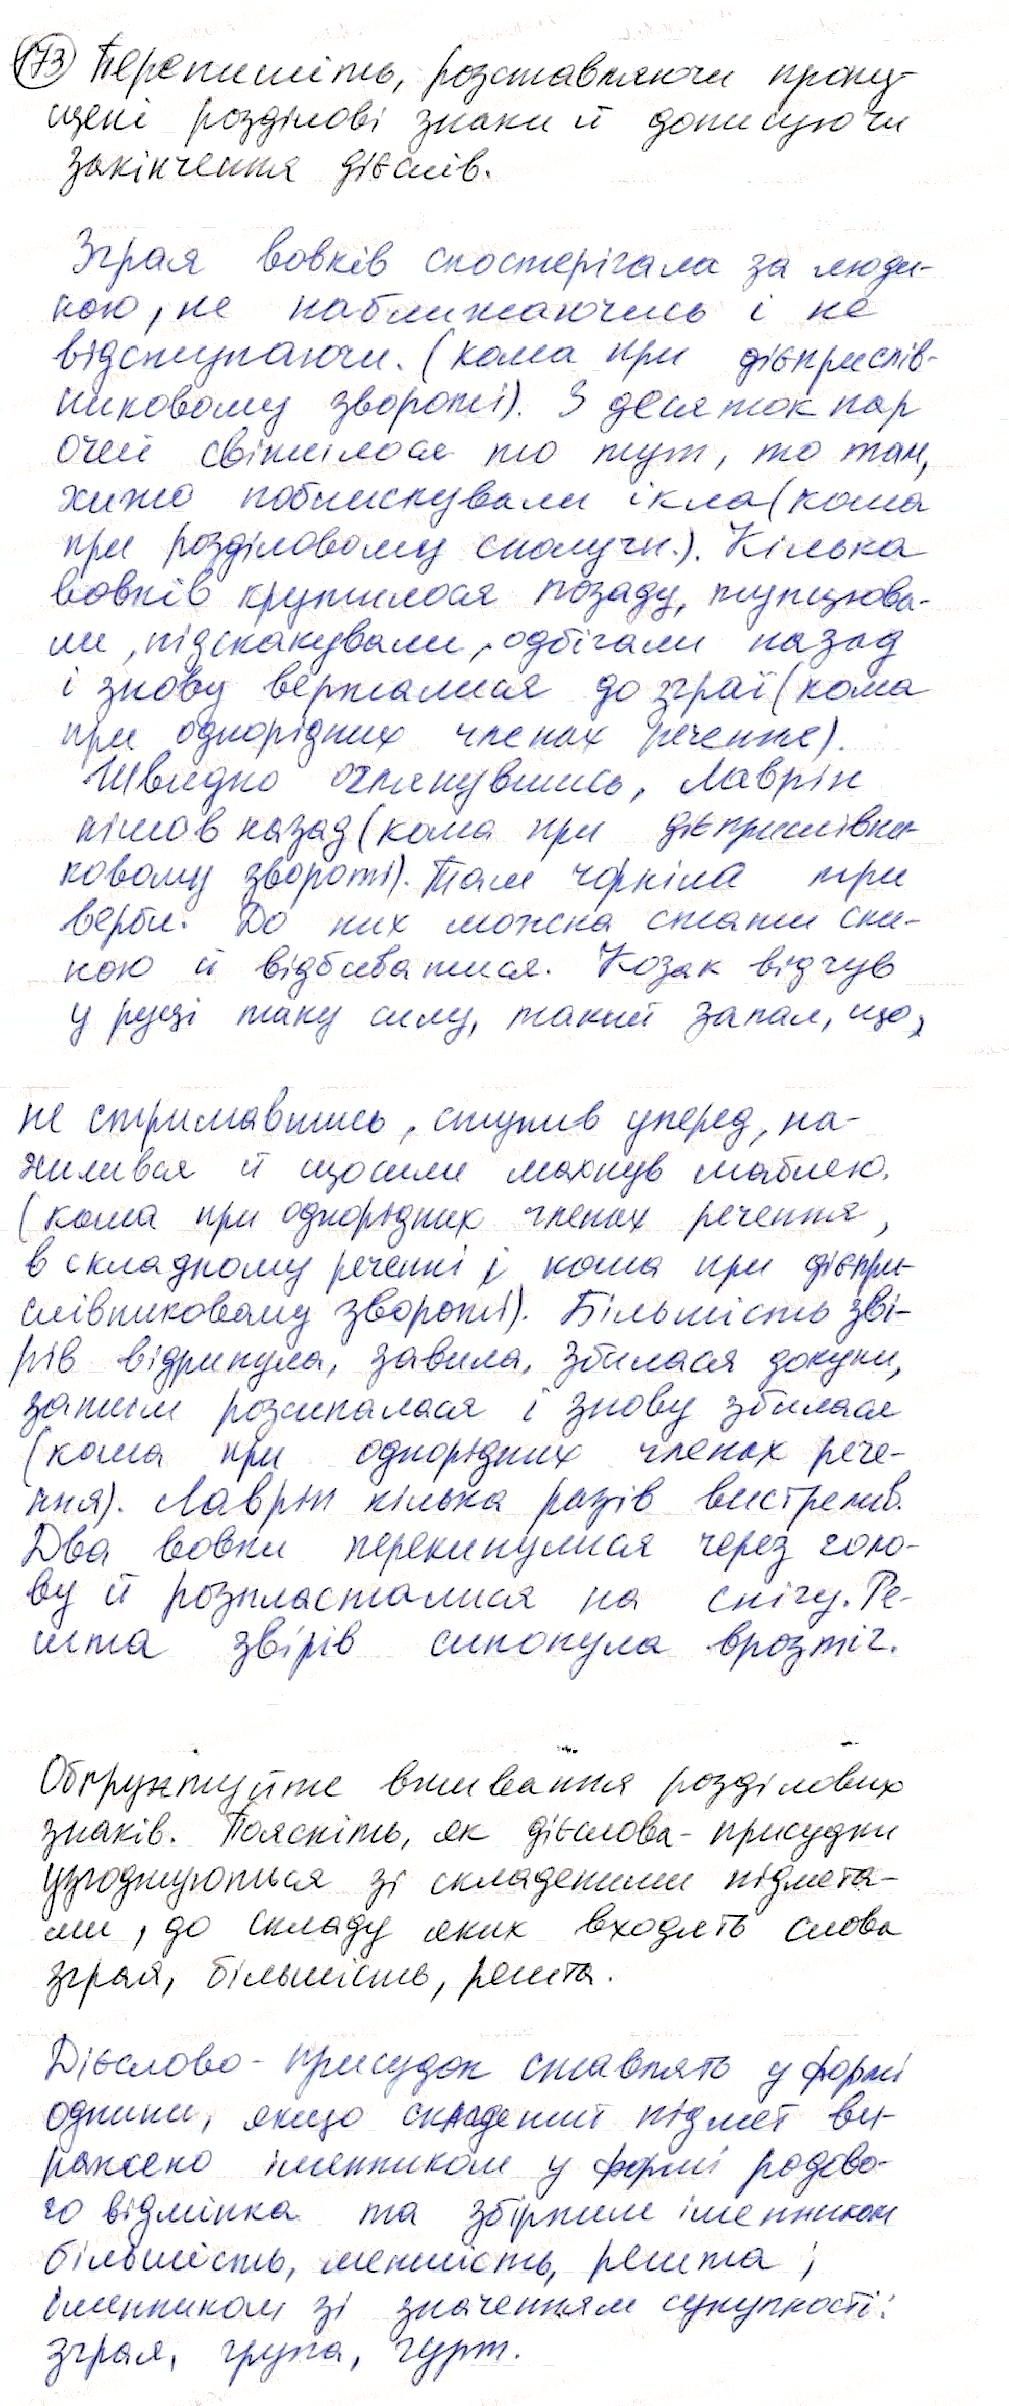 173 Перепишіть, розставляючи пропу-
щені розділові знаки й дописуючи
закінчення дієслів.
Зграя вовків спостерігала за люди-
ною, не наближаючись і не
відступаючи. (кома при дієприслів-
никовому звороті). З десяток пар
очей світилося то тут, то там,
хижо поблискували ікла (кома
при розділовому сполучн.). Кілька
вовків крутилося позаду, тупцюва-
ли, підскакували, одбігали назад
і знову верталися до зграї (кома
при однорідних членах речення).
Швидко озглянувшись, Лаврін
пішов назад (кома при дієприслівни-
ковому звороті). Там чорніла три
верби. До них можна стати спи-
ною й відбиватися. Козак відчув
у руці таку силу, такий запал, що,
не стримавшись, ступив уперед, на-
хилився й щосили махнув шаблею.
(кома при однорідних членах речення,
в складному реченні і кома при дієпри-
слівниковому звороті). Більшість зві-
рів відринула, завила, збилася докупи,
затим розсипалася і знову збилася
(кома при однорідних членах рече-
ння). Лаврін кілька разів вистрелив.
Два вовки перекинулися через голо-
ву й розпласталися на снігу. Ре-
шта звірів сипонула врозтіч.
Обґрунтуйте вживання розділових
знаків. Поясніть, як дієслова-присудки
узгоджуються зі складеними підмета-
ми, до складу яких входять слова
зграя, більшість, решта.
Дієслово-присудок ставлять у формі
однини, якщо складений підмет ви-
ражено іменником у формі родово-
го відмінка та збірним іменником
більшість, меншість, решта;
іменником зі значенням сукупності:
зграя, група, гурт.